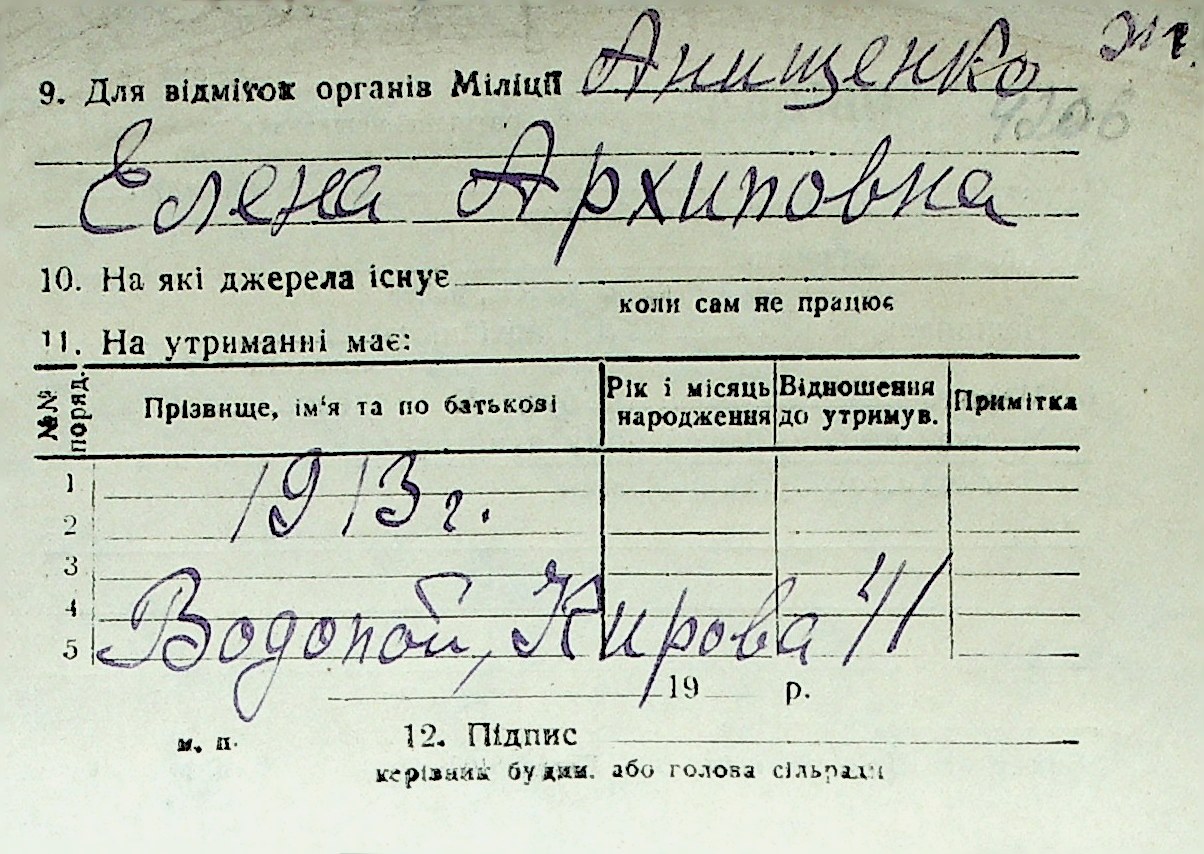 9. Для відміток органів Міліції Анищенко
Елена Архиповна
10. На які джерела існує
коли сам не працює
11. На утриманні має:
№№ поряд. Прізвище, ім'я та по батькові Рік і місяць народження Відношення до утримув. Примітка
1
1913 г.
2
3
4
Водопой, Кирова 41
5
19 р.
м. п. 12. Підпис
керівник будин. або голова сільради